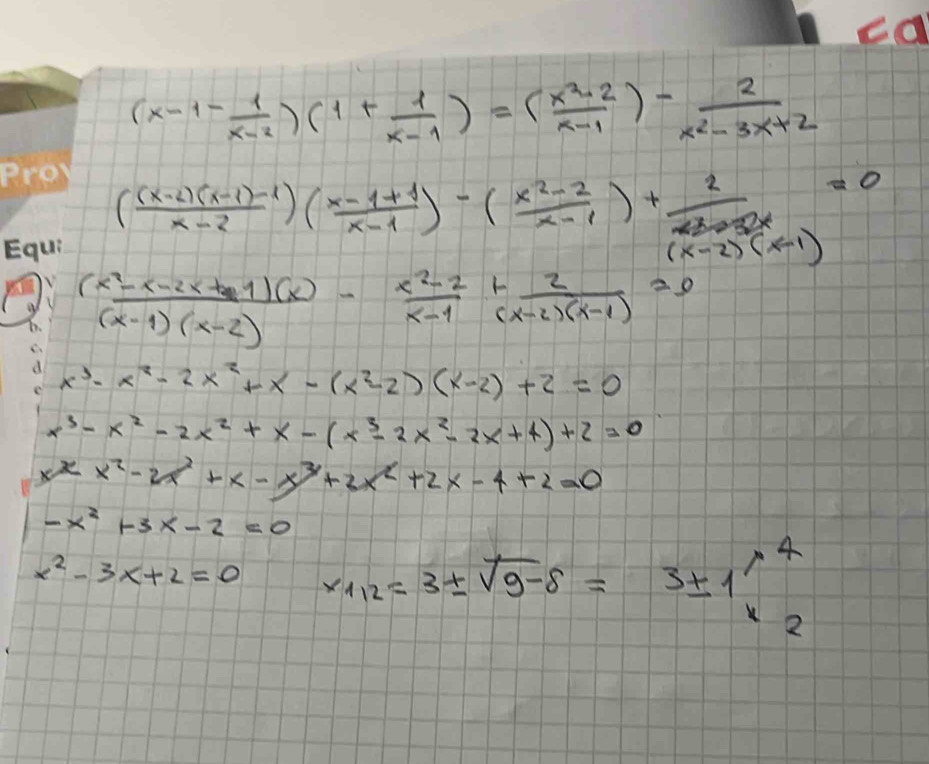 Ea
(x-1-\frac{1}{x-2})(1+\frac{1}{x-1}) = (\frac{x^2-2}{x-1}) - \frac{2}{x^2-3x+2}
Prov
(\frac{(x-2)(x-1)-1}{x-2})(\frac{x-1+1}{x-1}) - (\frac{x^2-2}{x-1}) + \frac{2}{(x-2)(x-1)} = 0
Equ
\frac{(x^2-x-2x+1)(x)}{(x-1)(x-2)} - \frac{x^2-2}{x-1} + \frac{2}{(x-2)(x-1)} = 0
b.
c.
d
x^3-x^2-2x^2+x-(x^2-2)(x-2)+2=0
x^3-x^2-2x^2+x-(x^3-2x^2-2x+4)+2=0
x^2-2x^2+x-x^3+2x^2+2x-4+2=0
-x^2+3x-2=0
x^2-3x+2=0 x_{1,2}=3±\sqrt{9-8}= 3±1 4
2